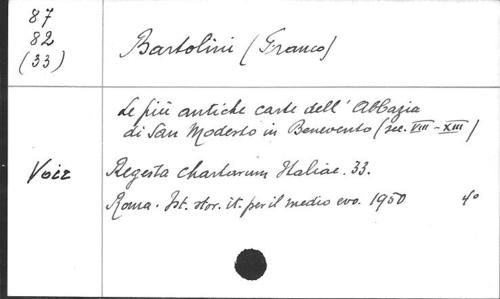 87
82
(33)
Bartolini (Franco)
Le più antiche carte dell' Abbazia
di San Modesto in Benevento (sec. VIII - XIII)
Voir
Regesta Chartarum Italiae. 33.
Roma. Ist. stor. it. per il medio evo. 1950 4°